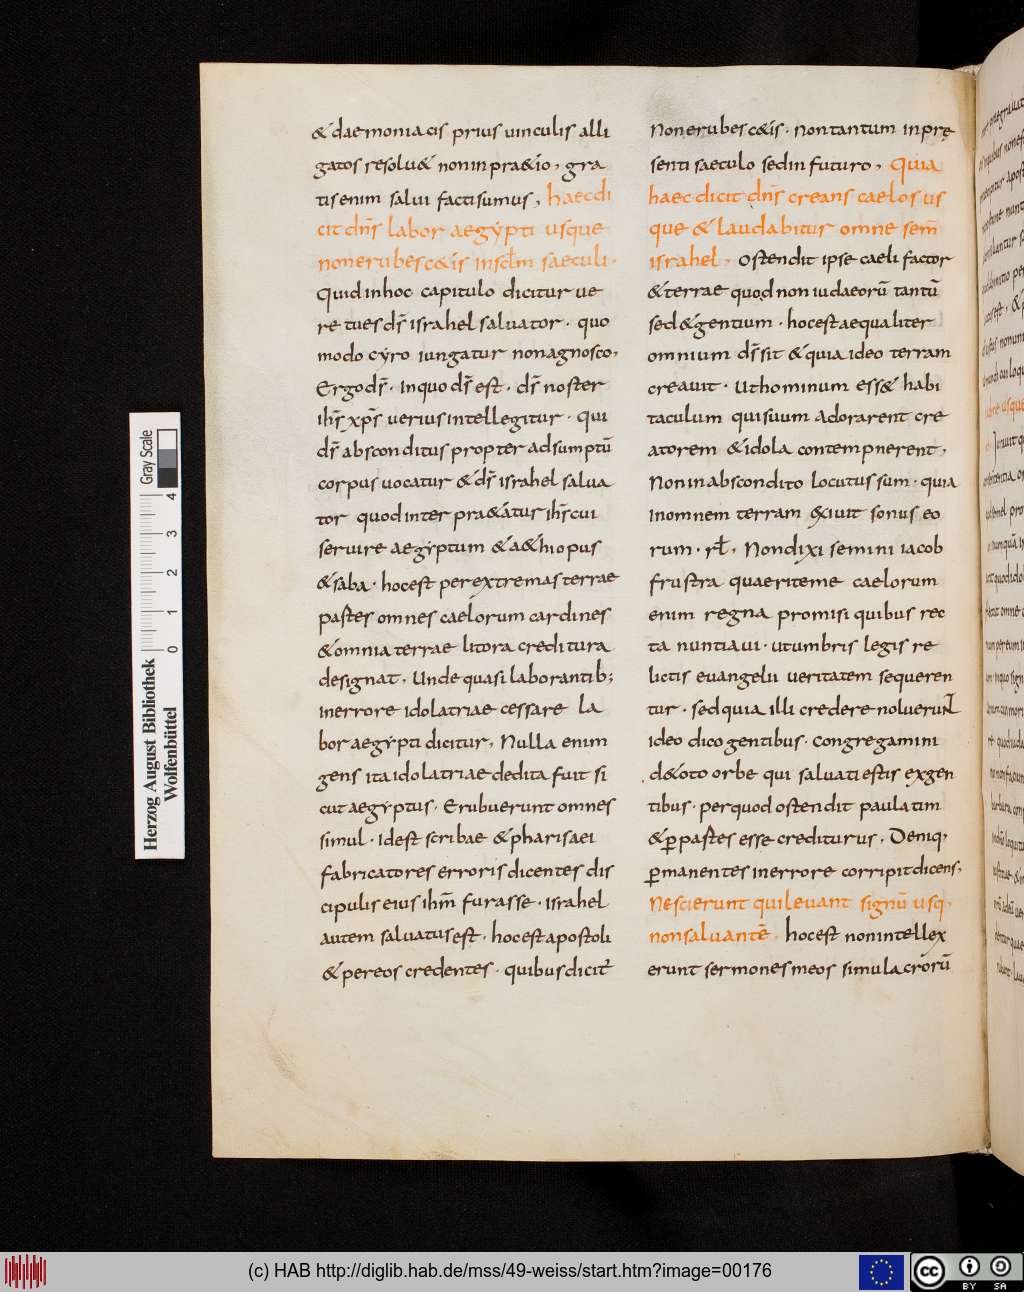 & daemoniacis prius uinculis alli
gatos resolu& nonin pra&io, gra
tisenim salui factisumus, haecdi
cit dn̄s labor aegypti usque
nonerubesc&is insclm̄ saeculi·
Quidinhoc capitulo dicitur ue
re tuesds̄ israhel saluator· quo
modo cyro iungatur nonagnosco,
Ergods̄· inquo ds̄ est· ds̄ noster
ihs̄ xps̄ uerius intellegitur· qui
ds̄ absconditus propter adsumptū
corpus uocatur & ds̄ israhel salua
tor quodinter pra&atur ihs̄cui
seruire aegyptum & a&hiopus
& saba· hocest perextremasterrae
partes omnes caelorum cardines
& omnia terrae litora creditura
designat, Unde quasi laborantib;
inerrore idolatriae cessare la
bor aegypti dicitur, Nulla enim
gens ita idolatriae dedita fuit si
cut aegyptus, Erubuerunt omnes
simul· idest scribae & pharisaei
fabricatores erroris dicentes dis
cipulis eius ihm̄ furasse· israhel
autem saluatus est· hocest apostoli
& pereos credentes· quibusdicit̄
Nonerubesc&is· nontantum inprę
senti saeculo sedin futuro, Quia
haec dicit dn̄s creans caelos us
que & laudabitur omne sem̄
israhel, Ostendit ipse caeli factor
& terrae quod non iudaeorū tantū
sed & gentium· hocestaequaliter
omnium ds̄ sit & quia ideo terram
creauit· Uthominum ess& habi
taculum quisuum adorarent cre
atorem & idola contempnerent,
Non inabscondito locutus sum· quia
inomnem terram exiuit sonus eo
rum· rl̄, Nondixi semini iacob
frustra quaeriteme caelorum
enim regna promisi quibus rec
ta nuntiaui· utumbris legis re
lictis euangelii ueritatem sequeren
tur· sedquia illi credere noluerunt
ideo dico gentibus· congregamini
d&oto orbe qui saluati estis exgen
tibus· perquod ostendit paulatim
& p̄ partes esse crediturus, Deniq,
p̄manentes inerrore corripit dicens,
Nescierunt quileuant signū usq·
nonsaluantē, hocest nonintellex
erunt sermonesmeos simulacrorū
Herzog August Bibliothek
Wolfenbüttel
0 1 2 3 4
Gray Scale
(c) HAB http://diglib.hab.de/mss/49-weiss/start.htm?image=00176
cc BY SA